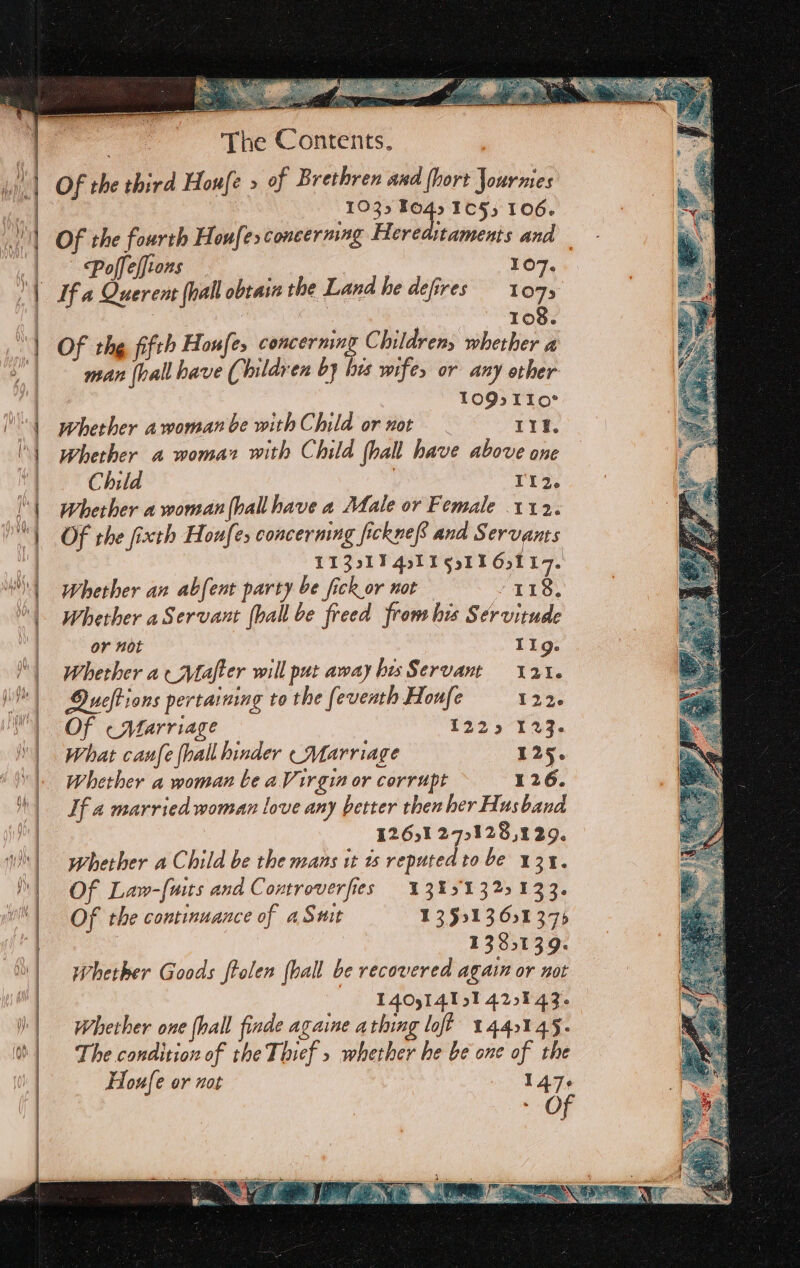 The Contents.
Of the third Houſe, of Brethren and ſhort Journies
103, 104, 105, 106.
Of the fourth Houſe, concerning Hereditaments and
Poſſeſſions 107.
If a Querent ſhall obtain the Land he deſires 107,
108.
Of the fifth Houſe, concerning Children, whether a
man ſhall have Children by his wife, or any other
109, 110.
Whether a woman be with Child or not 111.
Whether a woman with Child ſhall have above one
Child 112.
Whether a woman ſhall have a Male or Female 112.
Of the ſixth Houſe, concerning ſickneſs and Servants
113, 114, 115, 116, 117.
Whether an abſent party be ſick or not 118.
Whether a Servant ſhall be freed from his Servitude
or not 119.
Whether a Maſter will put away his Servant 121.
Queſtions pertaining to the ſeventh Houſe 122.
Of Marriage 122, 123.
What cauſe ſhall hinder Marriage 125.
Whether a woman be a Virgin or corrupt 126.
If a married woman love any better then her Husband
126, 127, 128, 129.
Whether a Child be the mans it is reputed to be 131.
Of Law-ſuits and Controverſies 131, 132, 133.
Of the continuance of a Suit 135, 136, 137,
138, 139.
Whether Goods ſtolen ſhall be recovered again or not
140, 141, 142, 143.
Whether one ſhall finde againe a thing loſt 144, 145.
The condition of the Thief, whether he be one of the
Houſe or not 147.
Of